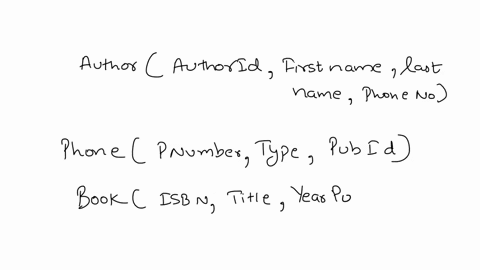 Author ( AuthorId, First name, last
name, Phone No)
Phone ( PNumber, Type, PubId)
Book ( ISBN, Title, YearPu